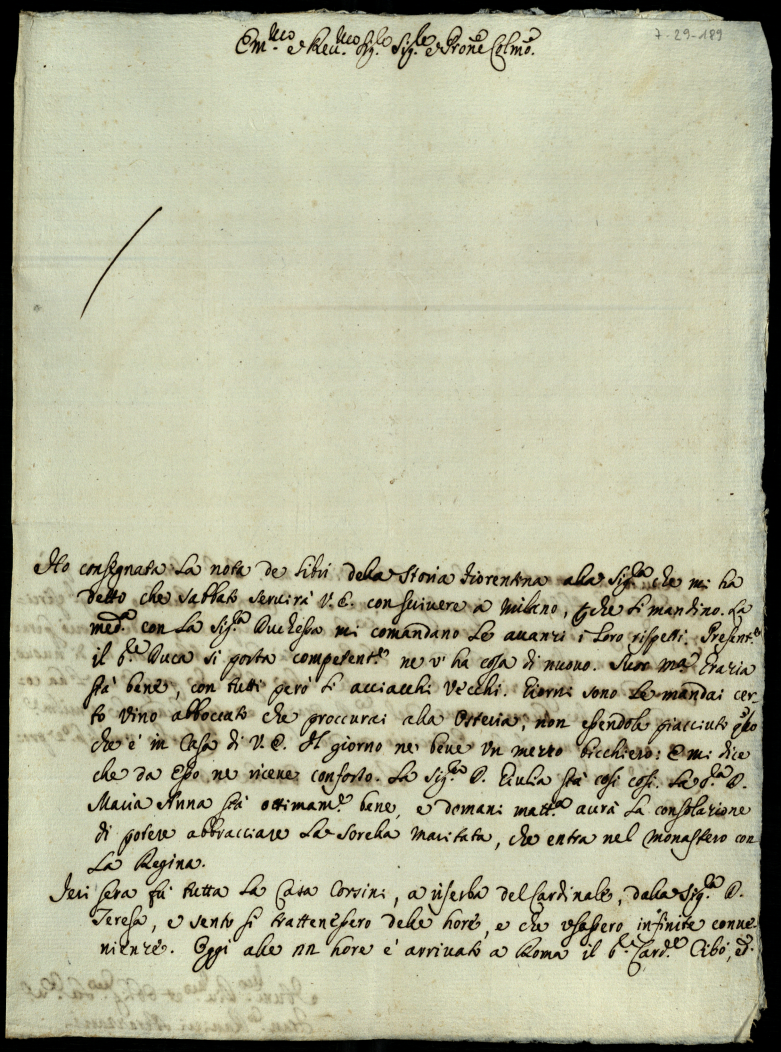 7-29-189
Em.mo e Rev.mo Sig.r Sig.r e Prone Colmo.
Ho consegnata la nota de libri della Storia fiorentina alla Sig.ra che mi ha
detto che sabbato servirà V.E. con scrivere a Milano, che si mandino. La
med.a con la Sig.ra Duchessa mi comandano le avanzi i loro rispetti. Present.e
il S.r Duca si porta competent.e ne v'ha cosa di nuovo. Suor M.a Grazia
stà bene, con tutti però li acciacchi vecchi. Giorni sono le mandai cer-
to vino abboccato che proccurai alla Osteria, non essendole piacciuto q.llo
che è in Casa di V.E. Il giorno ne beve un mezzo bicchiero: E mi dice
che da Esso ne riceve conforto. La Sig.ra D. Giulia stà così così. La S.ra D.
Maria Anna stà ottimam.e bene, e domani matt.a avrà la consolazione
di potere abbracciare la Sorella maritata, che entra nel Monastero con
la Regina.
Jeri sera fù tutta la Casa Corsini, a riserba del Cardinale, dalla Sig.ra D.
Teresa, e sento si trattenessero delle hore, e che usassero infinite conve-
nienze. Oggi alle hore è arrivato a Roma il S.r Card.e Cibò, ed